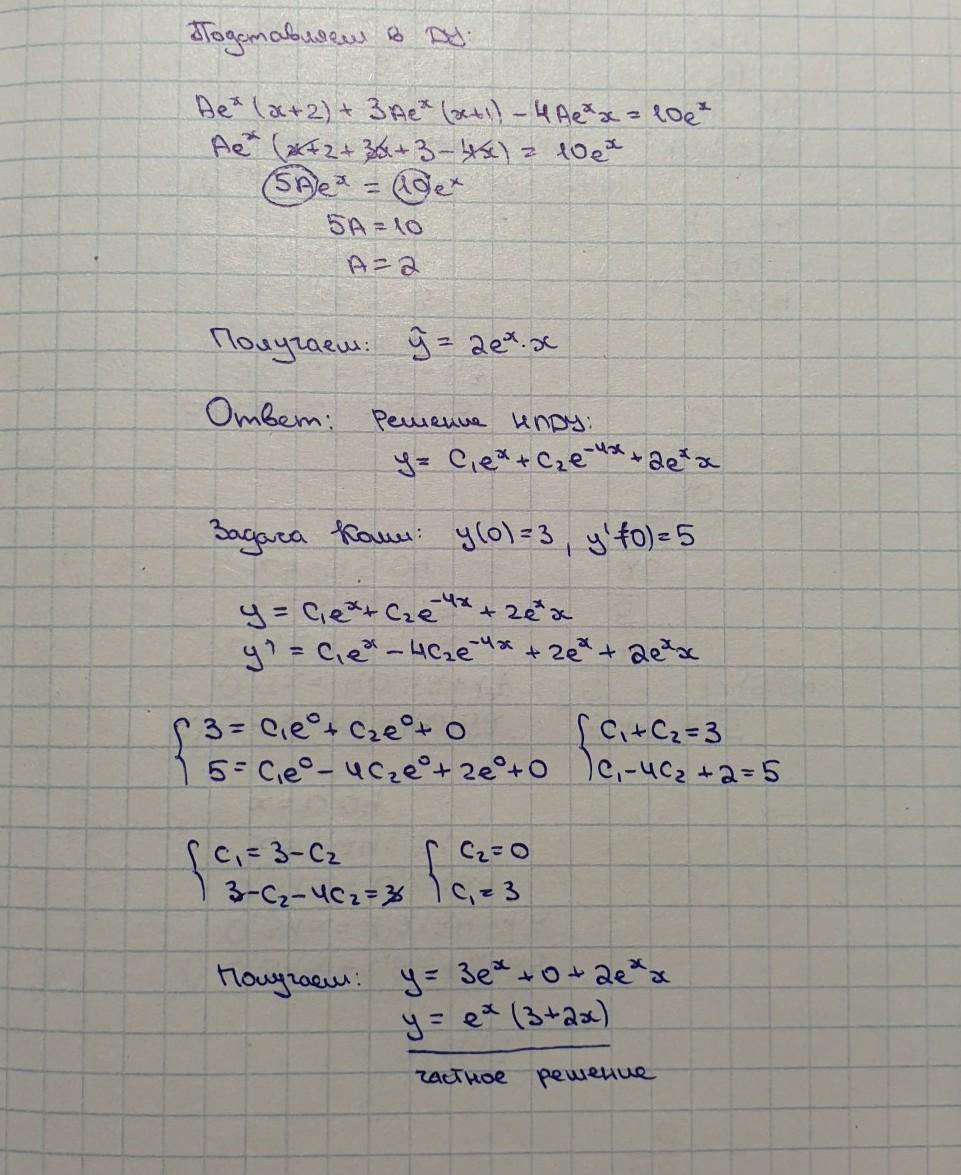 Подставляем в ДУ:
Aeˣ(x+2) + 3Aeˣ(x+1) − 4Aeˣx = 10eˣ
Aeˣ (x+2+3x+3−4x) = 10eˣ
5Aeˣ = 10eˣ
5A = 10
A = 2
Получаем: ỹ = 2eˣ·x
Ответ: Решение НПДУ:
y = C₁eˣ + C₂e⁻⁴ˣ + 2eˣx
Задача Коши: y(0)=3, y'(0)=5
y = C₁eˣ + C₂e⁻⁴ˣ + 2eˣx
y' = C₁eˣ − 4C₂e⁻⁴ˣ + 2eˣ + 2eˣx
{ 3 = C₁e⁰ + C₂e⁰ + 0 { C₁+C₂=3
5 = C₁e⁰ − 4C₂e⁰ + 2e⁰ + 0 C₁−4C₂+2=5
{ C₁ = 3−C₂ { C₂=0
3−C₂−4C₂=3 C₁=3
Получаем: y = 3eˣ + 0 + 2eˣx
y = eˣ(3+2x)
частное решение